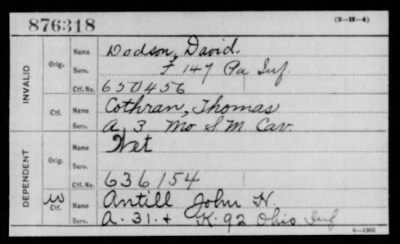 876318
(3-H-4)
INVALID
Orig.
Name Dodson, David.
Serv. F 147 Pa Inf.
Ctf. No. 650456
Ctf.
Name Cothran, Thomas
Serv. A, 3 Mo S M Cav.
DEPENDENT
Orig.
Name
Serv.
Ctf. No. 636154
W
Ctf.
Name Antill John H.
Serv. A. 31. & K. 92 Ohio Inf